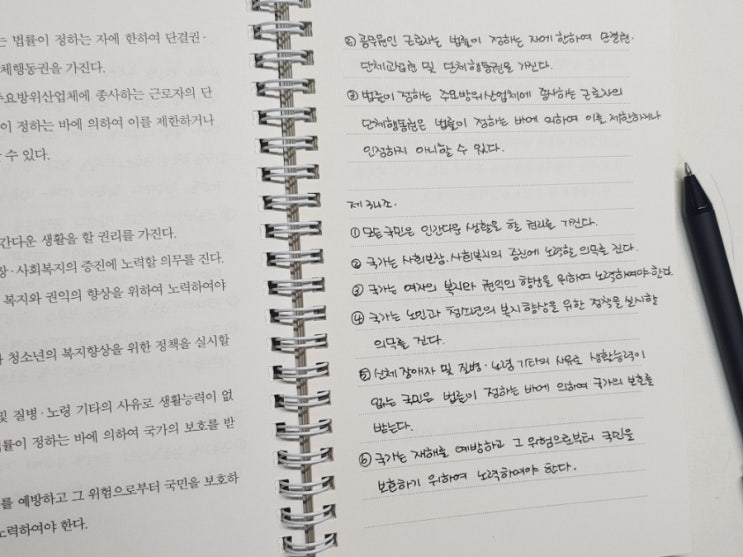 는 법률이 정하는 자에 한하여 단결권·
체행동권을 가진다.
주요방위산업체에 종사하는 근로자의 단
이 정하는 바에 의하여 이를 제한하거나
할 수 있다.
간다운 생활을 할 권리를 가진다.
장·사회복지의 증진에 노력할 의무를 진다.
복지와 권익의 향상을 위하여 노력하여야
청소년의 복지향상을 위한 정책을 실시할
및 질병·노령 기타의 사유로 생활능력이 없
법률이 정하는 바에 의하여 국가의 보호를 받
를 예방하고 그 위험으로부터 국민을 보호하
노력하여야 한다.
② 공무원인 근로자는 법률이 정하는 자에 한하여 단결권.
단체교섭권 및 단체행동권을 가진다.
③ 법률이 정하는 주요방위산업체에 종사하는 근로자의
단체행동권은 법률이 정하는 바에 의하여 이를 제한하거나
인정하지 아니할 수 있다.
제34조.
① 모든 국민은 인간다운 생활을 할 권리를 가진다.
② 국가는 사회보장.사회복지의 증진에 노력할 의무를 진다.
③ 국가는 여자의 복지와 권익의 향상을 위하여 노력하여야 한다.
④ 국가는 노인과 청소년의 복지향상을 위한 정책을 실시할
의무를 진다.
⑤ 신체장애자 및 질병·노령 기타의 사유로 생활능력이
없는 국민은 법률이 정하는 바에 의하여 국가의 보호를
받는다.
⑥ 국가는 재해를 예방하고 그 위험으로부터 국민을
보호하기 위하여 노력하여야 한다.